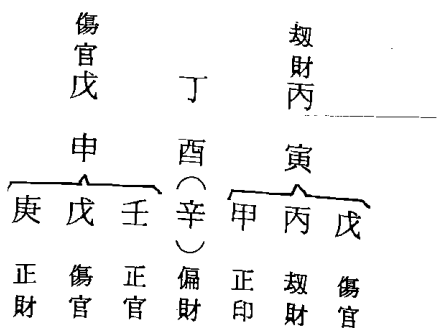 傷官 劾財
戊 丁 丙
申 酉 寅
庚 戊 壬 (辛) 甲 丙 戊
正財 傷官 正官 偏財 正印 劾財 傷官